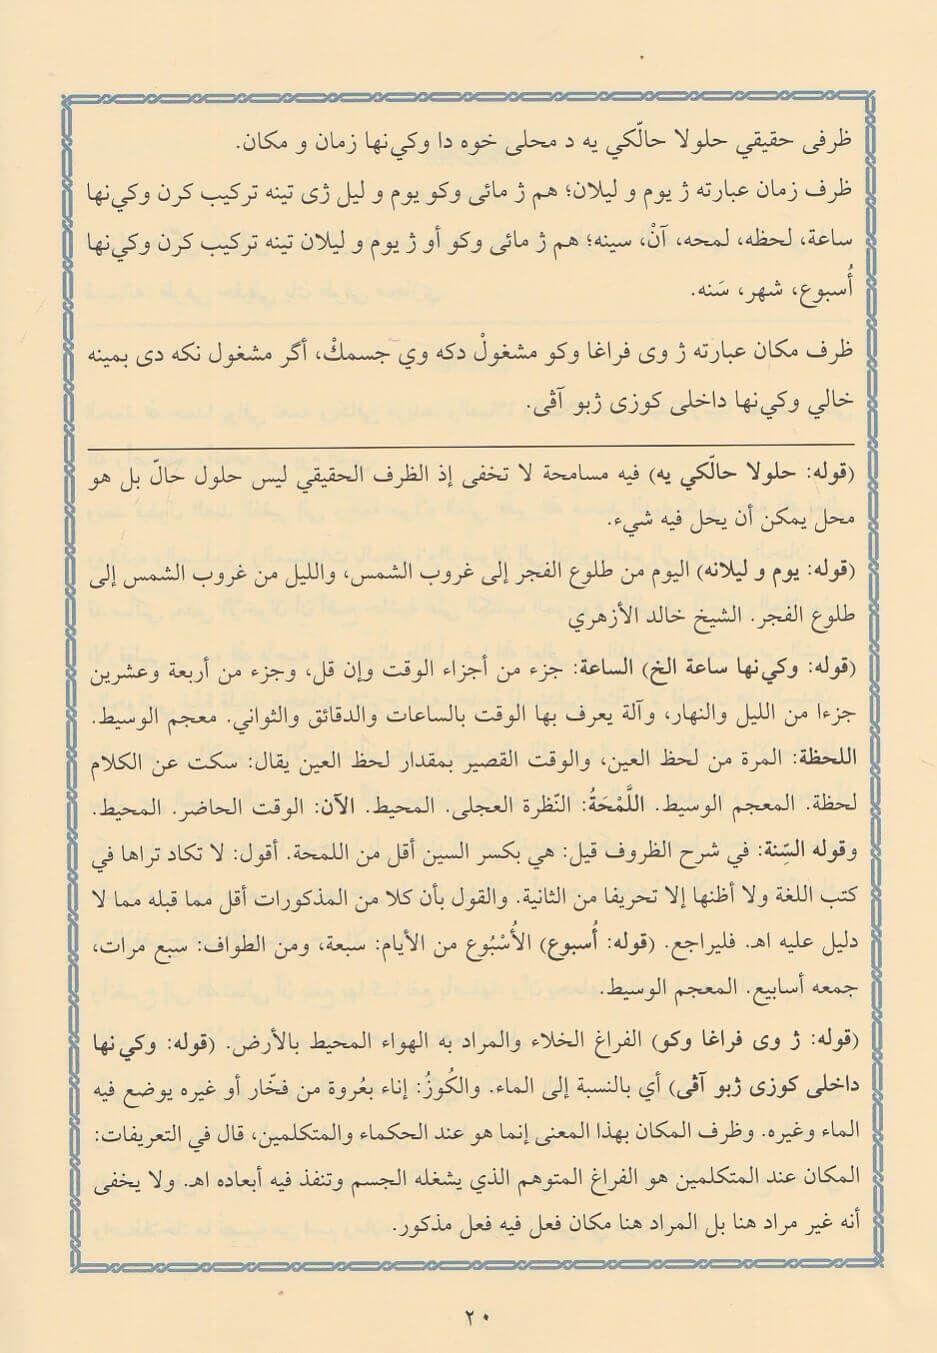 ظرفی حقیقي حلولا حالّکي یه د محلی خوه دا وکي‌نها زمان و مکان.
ظرف زمان عبارته ژ یوم و لیلان؛ هم ژ مائی وکو یوم و لیل ژی تینه ترکیب کرن وکي‌نها
ساعة، لحظه، لمحه، آنْ، سینه؛ هم ژ مائی وکو أو ژ یوم و لیلان تینه ترکیب کرن وکي‌نها
أُسبوع، شهر، سَنه.
ظرف مکان عبارته ژ وی فراغا وکو مشغولْ دکه وي جسمكْ، أگر مشغول نکه دی بمینه
خالي وکي‌نها داخلی کوزی ژبو آڤی.
(قوله: حلولا حالّكي یه) فيه مسامحة لا تخفى إذ الظرف الحقيقي ليس حلول حالّ بل هو
محل يمكن أن يحل فيه شيء.
(قوله: يوم و ليلانه) اليوم من طلوع الفجر إلى غروب الشمس، والليل من غروب الشمس إلى
طلوع الفجر. الشيخ خالد الأزهري
(قوله: وكي‌نها ساعة الخ) الساعة: جزء من أجزاء الوقت وإن قل، وجزء من أربعة وعشرين
جزءا من الليل والنهار، وآلة يعرف بها الوقت بالساعات والدقائق والثواني. معجم الوسيط.
اللحظة: المرة من لحظ العين، والوقت القصير بمقدار لحظ العين يقال: سكت عن الكلام
لحظة. المعجم الوسيط. اللَّمْحَةُ: النّظرة العجلى. المحيط. الآن: الوقت الحاضر. المحيط.
وقوله السِّنة: في شرح الظروف قيل: هي بكسر السين أقل من اللمحة. أقول: لا تكاد تراها في
كتب اللغة ولا أظنها إلا تحريفا من الثانية. والقول بأن كلا من المذكورات أقل مما قبله مما لا
دليل عليه اهـ. فليراجع. (قوله: أسبوع) الأُسْبُوع من الأيام: سبعة، ومن الطواف: سبع مرات،
جمعه أسابيع. المعجم الوسيط.
(قوله: ژ وی فراغا وكو) الفراغ الخلاء والمراد به الهواء المحيط بالأرض. (قوله: وكي‌نها
داخلی كوزی ژبو آڤی) أي بالنسبة إلى الماء. والكُوزُ: إناء بعُروة من فخّار أو غيره يوضع فيه
الماء وغيره. وظرف المكان بهذا المعنى إنما هو عند الحكماء والمتكلمين، قال في التعريفات:
المكان عند المتكلمين هو الفراغ المتوهم الذي يشغله الجسم وتنفذ فيه أبعاده اهـ. ولا يخفى
أنه غير مراد هنا بل المراد هنا مكان فعل فيه فعل مذكور.
٢٠